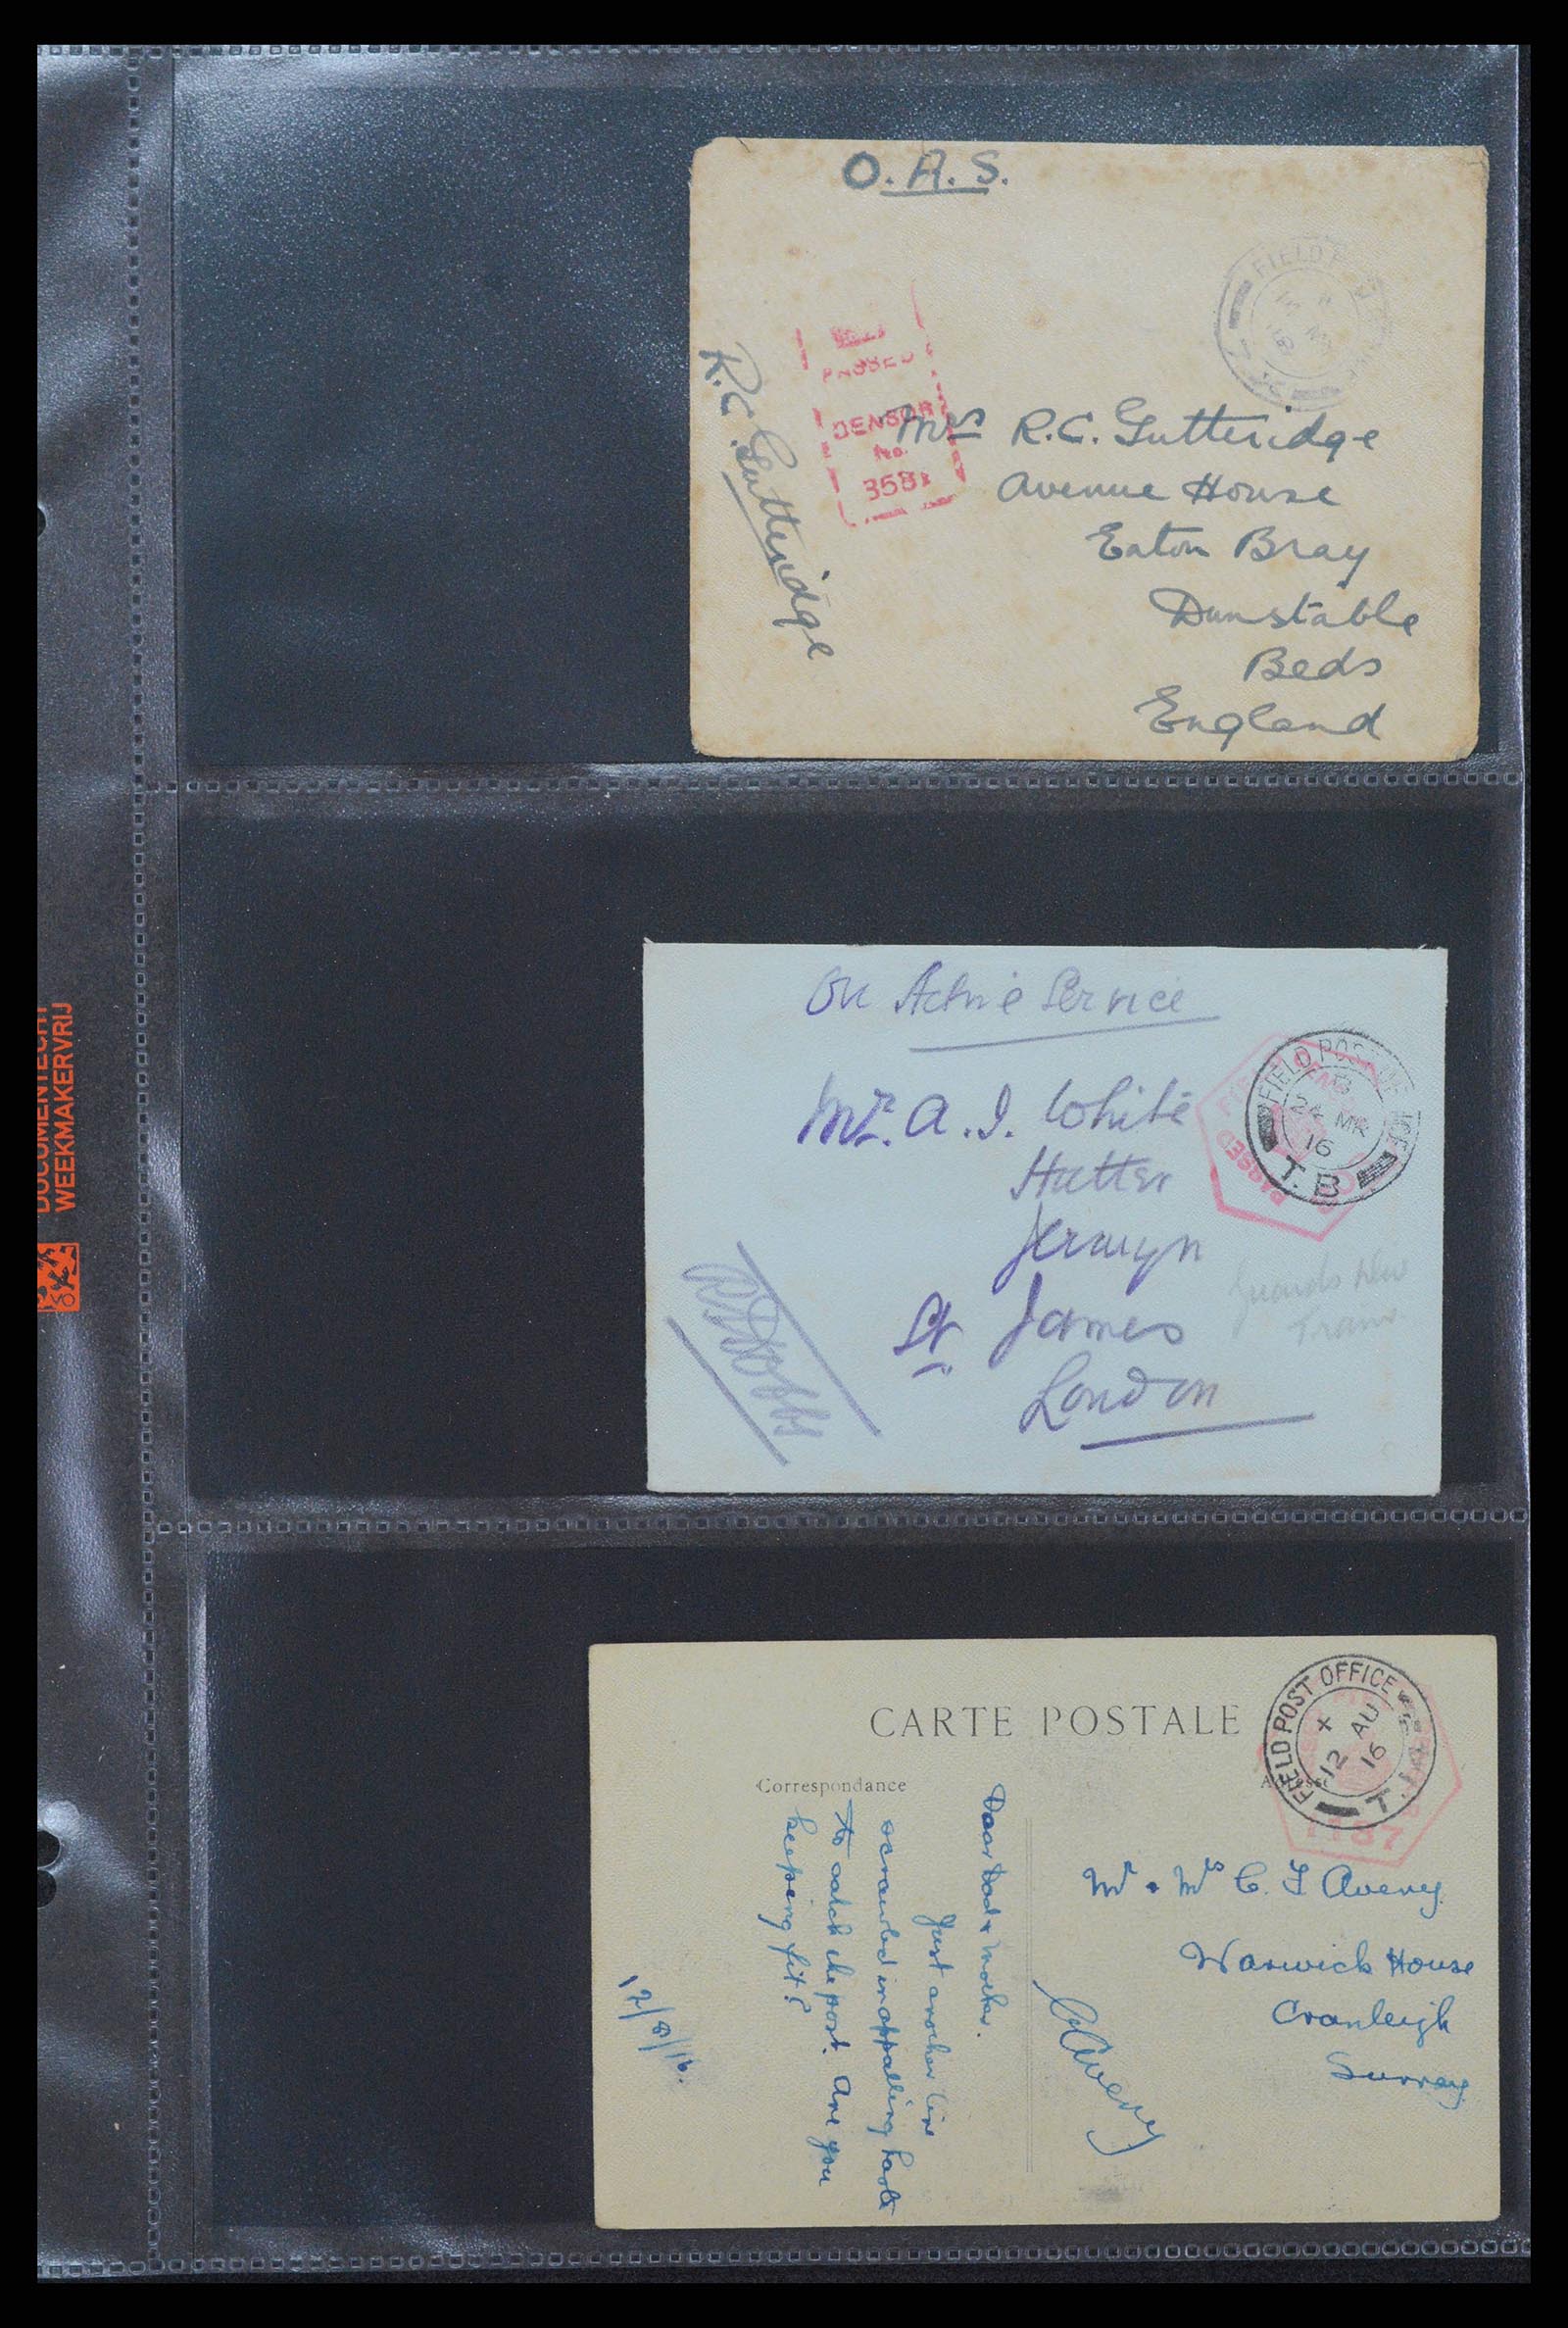 O.A.S.
FIELD P
PASSED
CENSOR
No.
358
R.C. Gutteridge
Mrs R.C. Gutteridge
Avenue House
Eaton Bray
Dunstable
Beds
England
On Active Service
FIELD POST OFFICE
B
24 MR
16
T.B
PASSED
Mr. A.J. White
Hatter
Jermyn
St James
London
Guards
DOCUMENTECHT
WEEKMAKERVRIJ
CARTE POSTALE
Correspondance
FIELD POST OFFICE
X
12 AU
16
T.
1187
Dear Dad & Mother.
Just another line
scrawled in appalling haste
to catch the post. Are you
keeping fit?
12/8/16.
CAvery
Mr & Mrs C. J Avery.
Warwick House
Cranleigh
Surrey